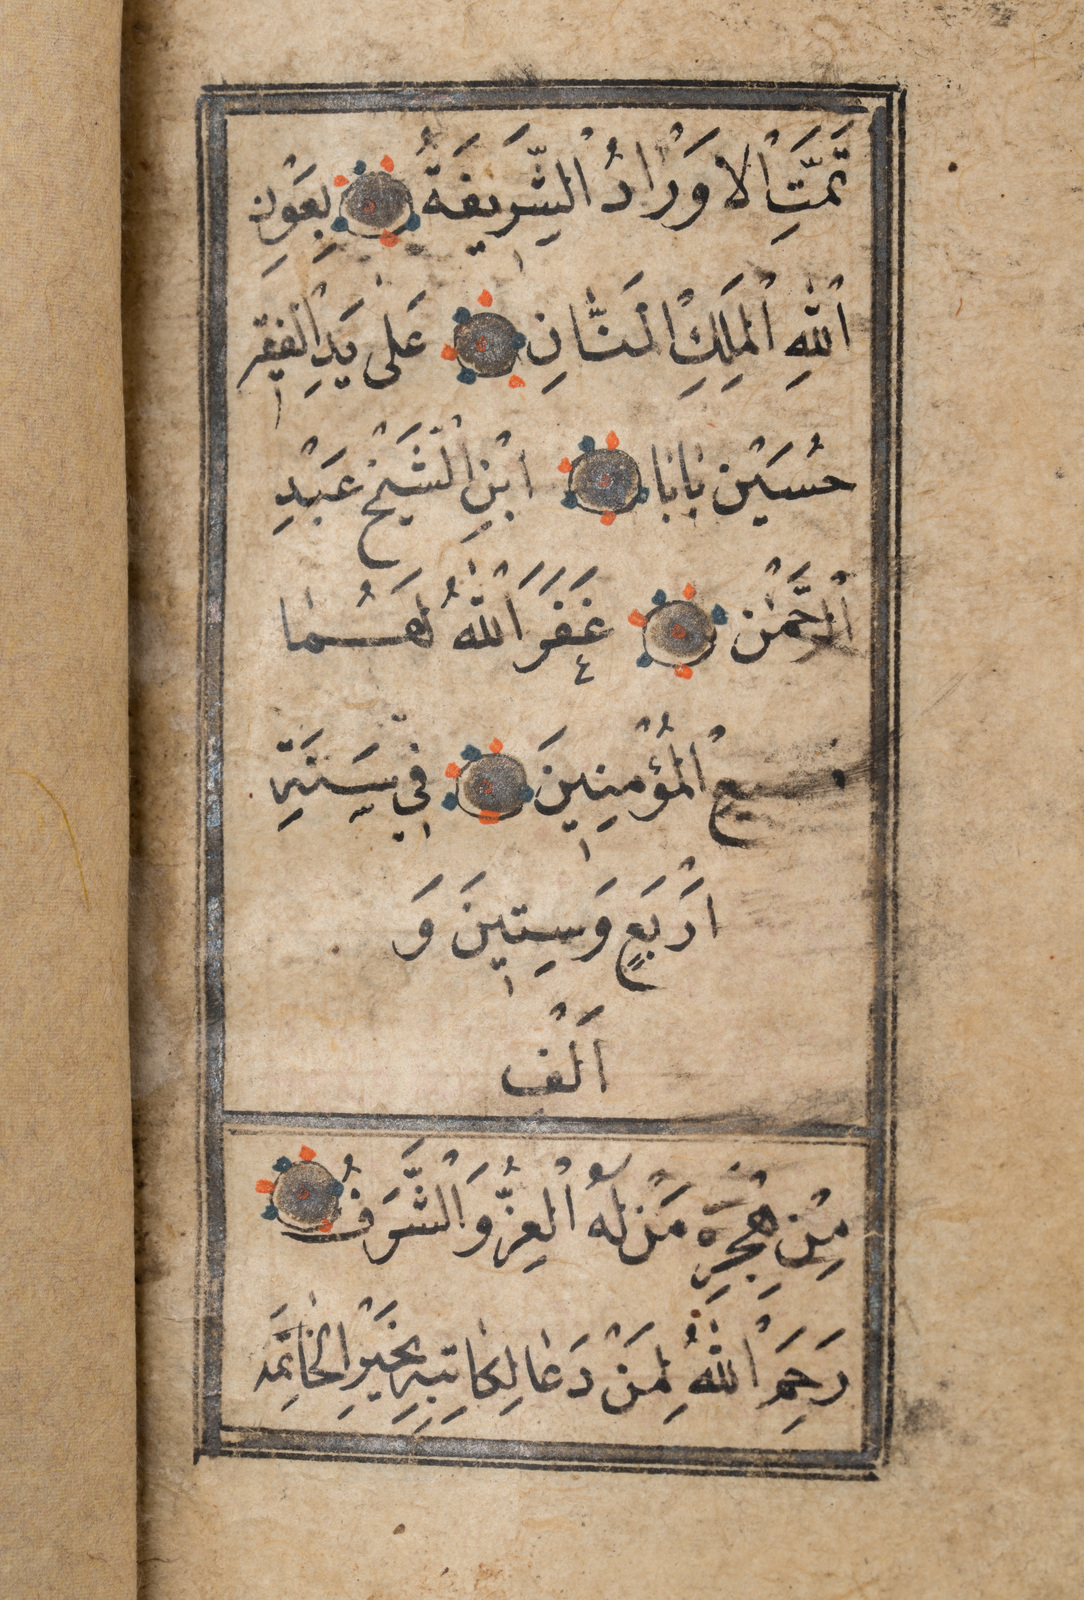 تَمَّتِ الْاَوْرَادُ الشَّرِيفَةُ بِعَوْنِ
اللهِ الْمَلِكِ الْمَنَّانِ عَلٰى يَدِ الْفَقِيرِ
حُسَيْن بَابَا ابْنِ الشَّيْخِ عَبْدِ
الرَّحْمٰنِ غَفَرَ اللهُ لَهُمَا
الْمُؤْمِنِينَ فِي سَنَةِ
اَرْبَعٍ وَسِتِينَ وَ
اَلْفٍ
مِنْ هِجْرَةِ مَنْ لَهُ الْعِزُّ وَالشَّرَفُ
رَحِمَ اللهُ لِمَنْ دَعَا لِكَاتِبِهِ بِخَيْرِ الْخَاتِمَه